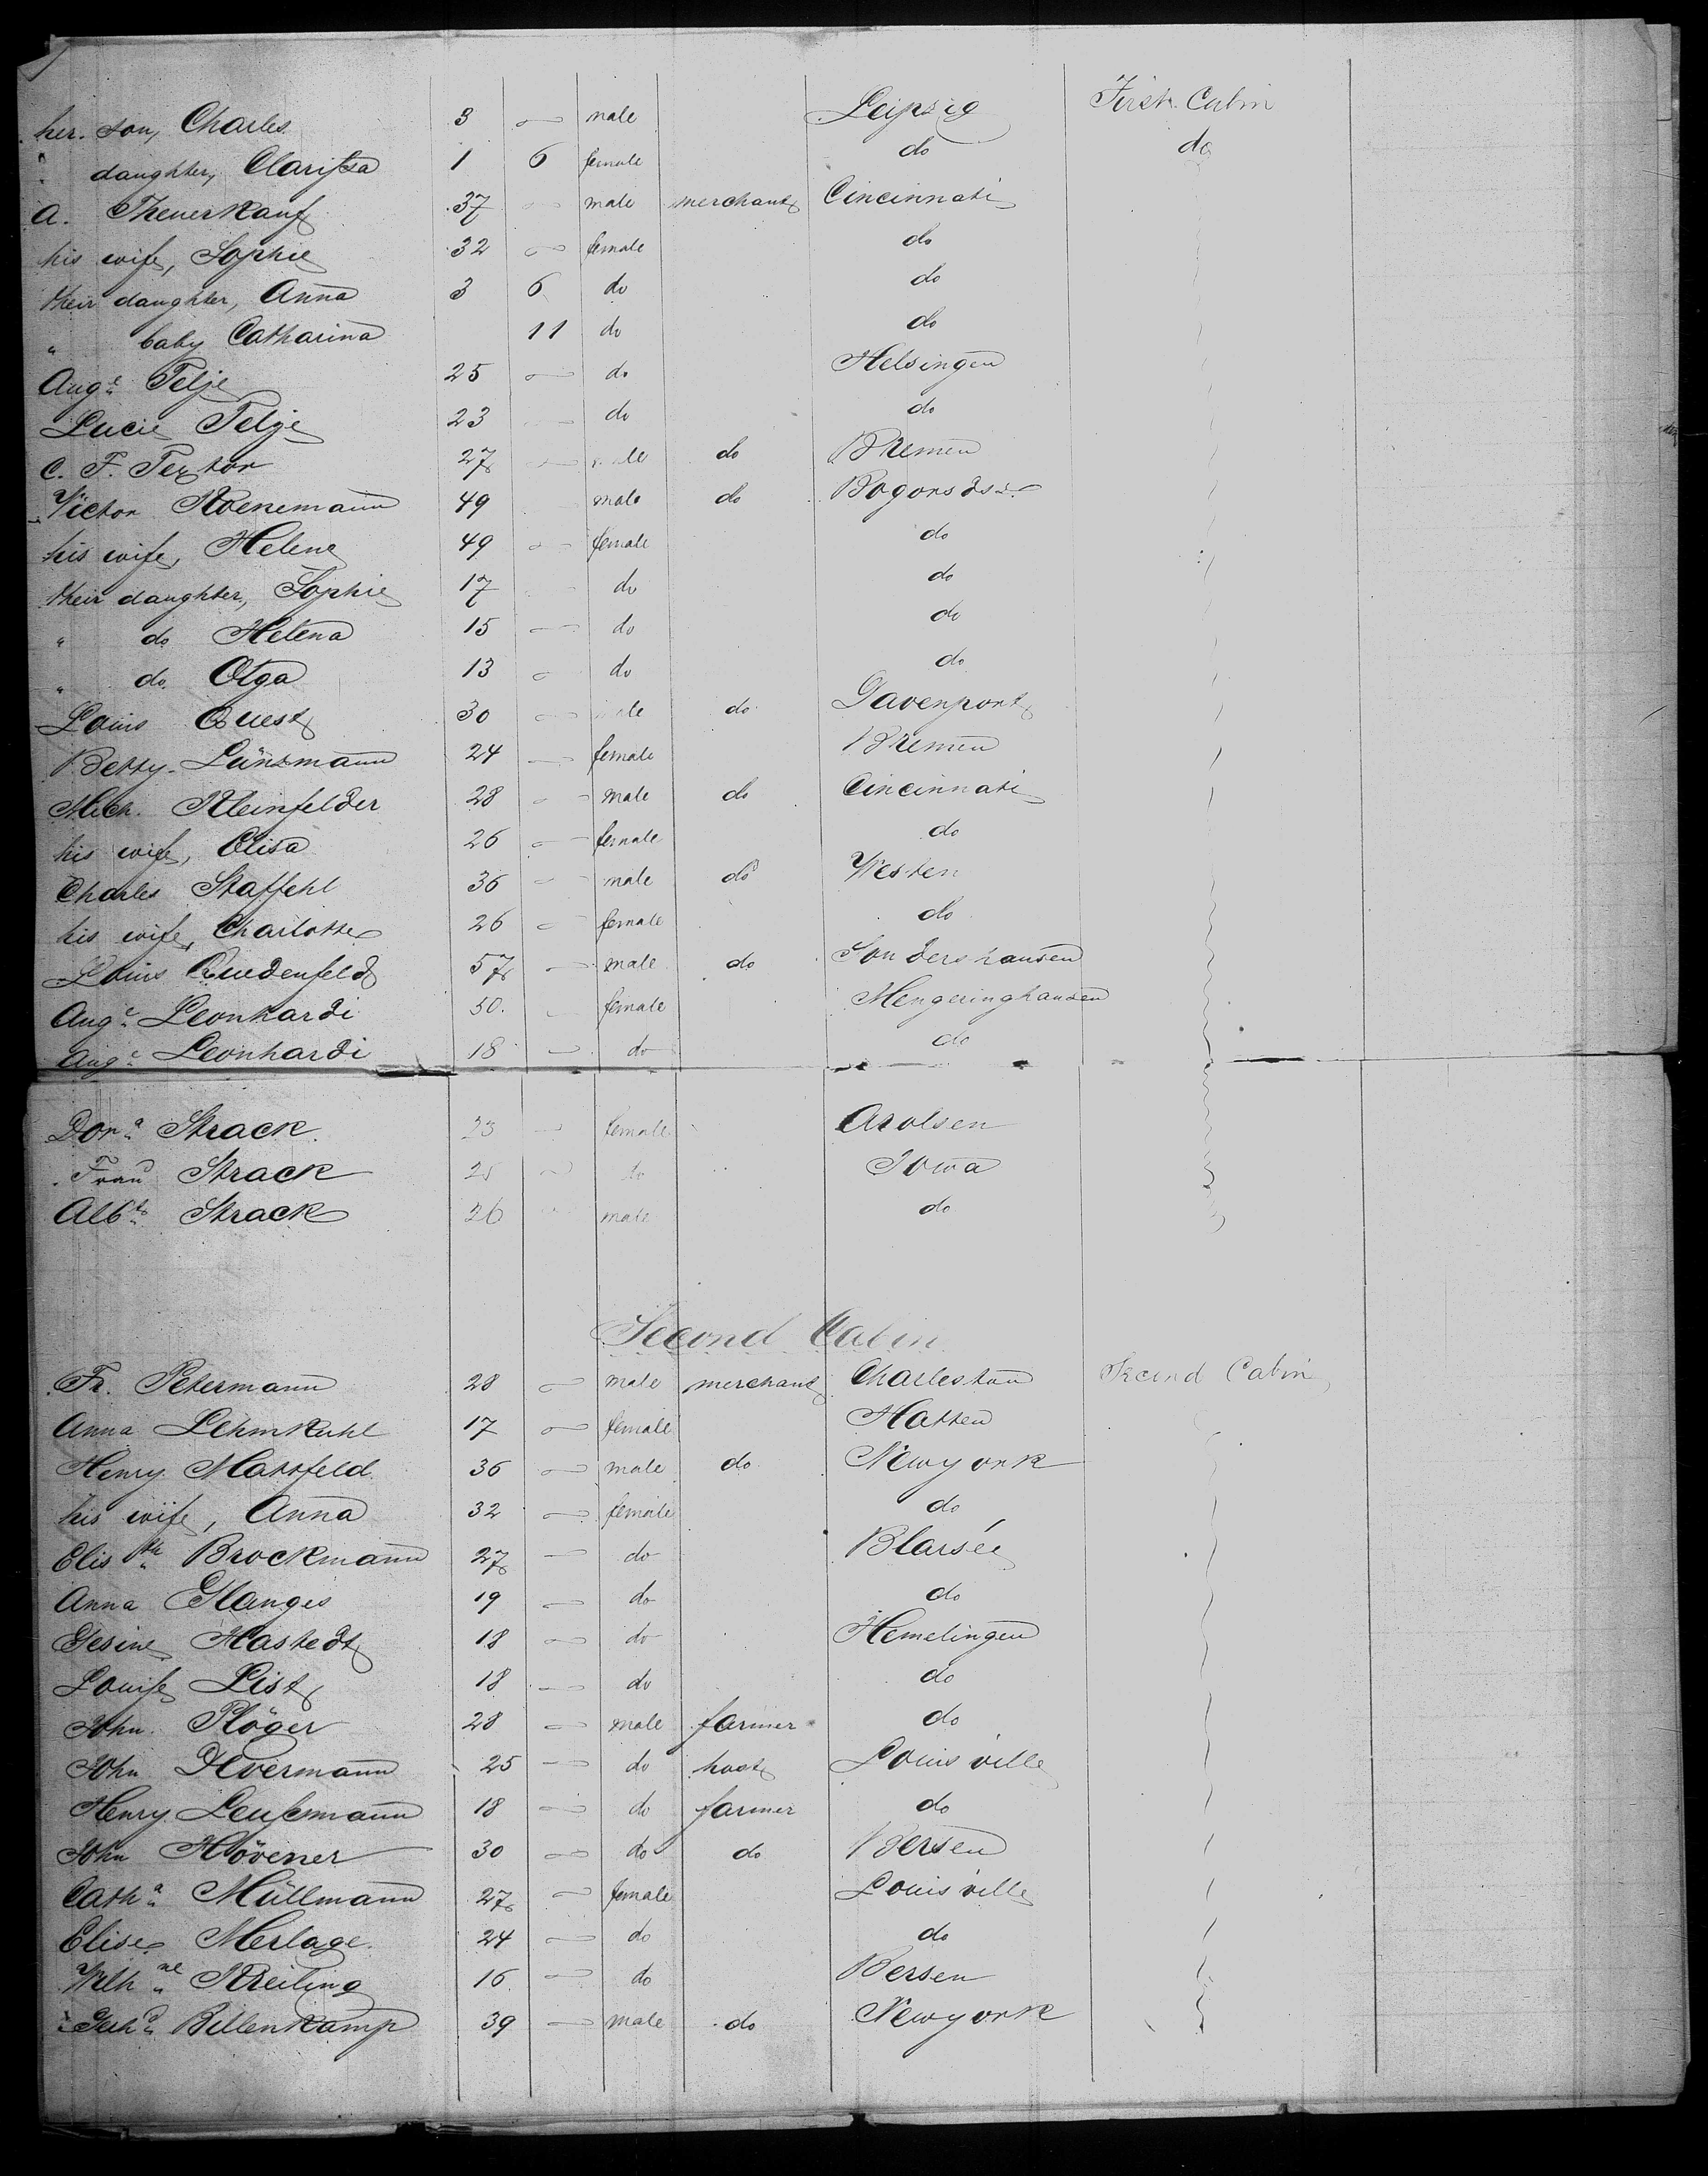 her son, Charles 3 — male Leipzig First Cabin
" daughter, Clarissa 1 6 female do do
A. Theuerkauf 37 — male merchant Cincinnati
his wife, Sophie 32 — female do
their daughter, Anna 3 6 do do
" baby Catharina 11 do do
Aug.e Telje 25 — do Helsingen
Lucie Telje 23 — do do
C. F. Textor 27 — male do Bremen
Victor Koenemann 49 male do
his wife, Helene 49 — female do
their daughter, Sophie 17 do do
" do Helena 15 — do do
" do. Olga 13 — do do
Louis Quest 30 — male do Davenport
Betty Lünsmann 24 — female Bremen
Mich. Kleinfelder 28 — male do Cincinnati
his wife, Elisa 26 — female do
Charles Staffehl 36 — male do Westen
his wife, Charlotte 26 — female do
Louis Quedenfeld 57 — male do Sondershausen
Aug.e Leonhardi 50. — female Mengeringhausen
Aug.e Leonhardi 18 — do do
Dor.a Strack 23 — female Arolsen
Frau Strack — do Iowa
Alb.t Strack 26 male do
Second Cabin
Fr. Petermann 28 — male merchant Charleston Second Cabin
Anna Lehmkuhl 17 — female Hatten
Henry Marsfeld 36 — male do Newyork
his wife, Anna 32 — female do
Elis.th Brockmann 27 — do
Anna Glanges 19 — do do
Gesine Hastedt 18 — do Hemelingen
Louise List 18 — do do
John Plöger 28 — male farmer do
John 25 — do host Louisville
Henry Leussmann 18 — do farmer do
John Hövener 30 — do do Bersen
Cath.a Müllmann 27 — female Louisville
Elise Merlage 24 — do do
Wilh.ne Kreiling 16 — do Bersen
Gerh.d Bellenkamp 39 — male do Newyork